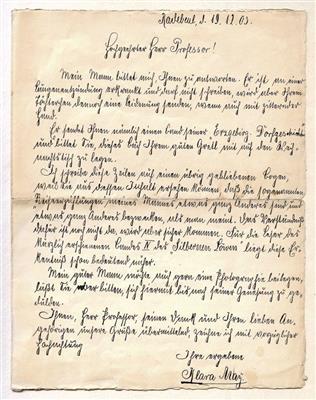 Radebeul, d. 19.12.03.
Hochgeehrter Herr Professor!
Mein Mann bittet mich, Ihnen zu antworten. Er ist an einer
Lungenentzündung erkrankt und darf nicht schreiben, wird aber Ihrem
Töchterchen dennoch eine Widmung senden, wenn auch mit zitternder
Hand.
Er sendet Ihnen nämlich einen Band seiner Erzgebirg. Dorfgeschichten
und bittet Sie, dieses Buch Ihrem guten Gretl mit auf den Weih-
nachtstisch zu legen.
Ich schreibe diese Zeilen auf einen übrig gebliebenen Bogen,
weil Sie aus dessen Inhalt ersehen können, daß die sogenannten
Reiseerzählungen meines Mannes etwas ganz Anderes sind und
etwas ganz Anderes bezwecken, als man meint. Das Verständniß
dafür ist noch nicht da, wird aber sicher kommen. Für die Leser des
kürzlich erschienenen Bandes IV des "Silbernen Löwen" liegt diese Er-
kenntniß schon bedeutend näher.
Mein guter Mann möchte auch gern eine Photographie beilegen,
läßt Sie aber bitten, sich hiermit bis nach seiner Genesung zu ge-
dulden.
Ihnen, Herr Professor, seinen Dank und Ihren lieben An-
gehörigen unsere Grüße übermittelnd, zeichne ich mit vorzüglicher
Hochachtung
Ihre ergebene
Klara May